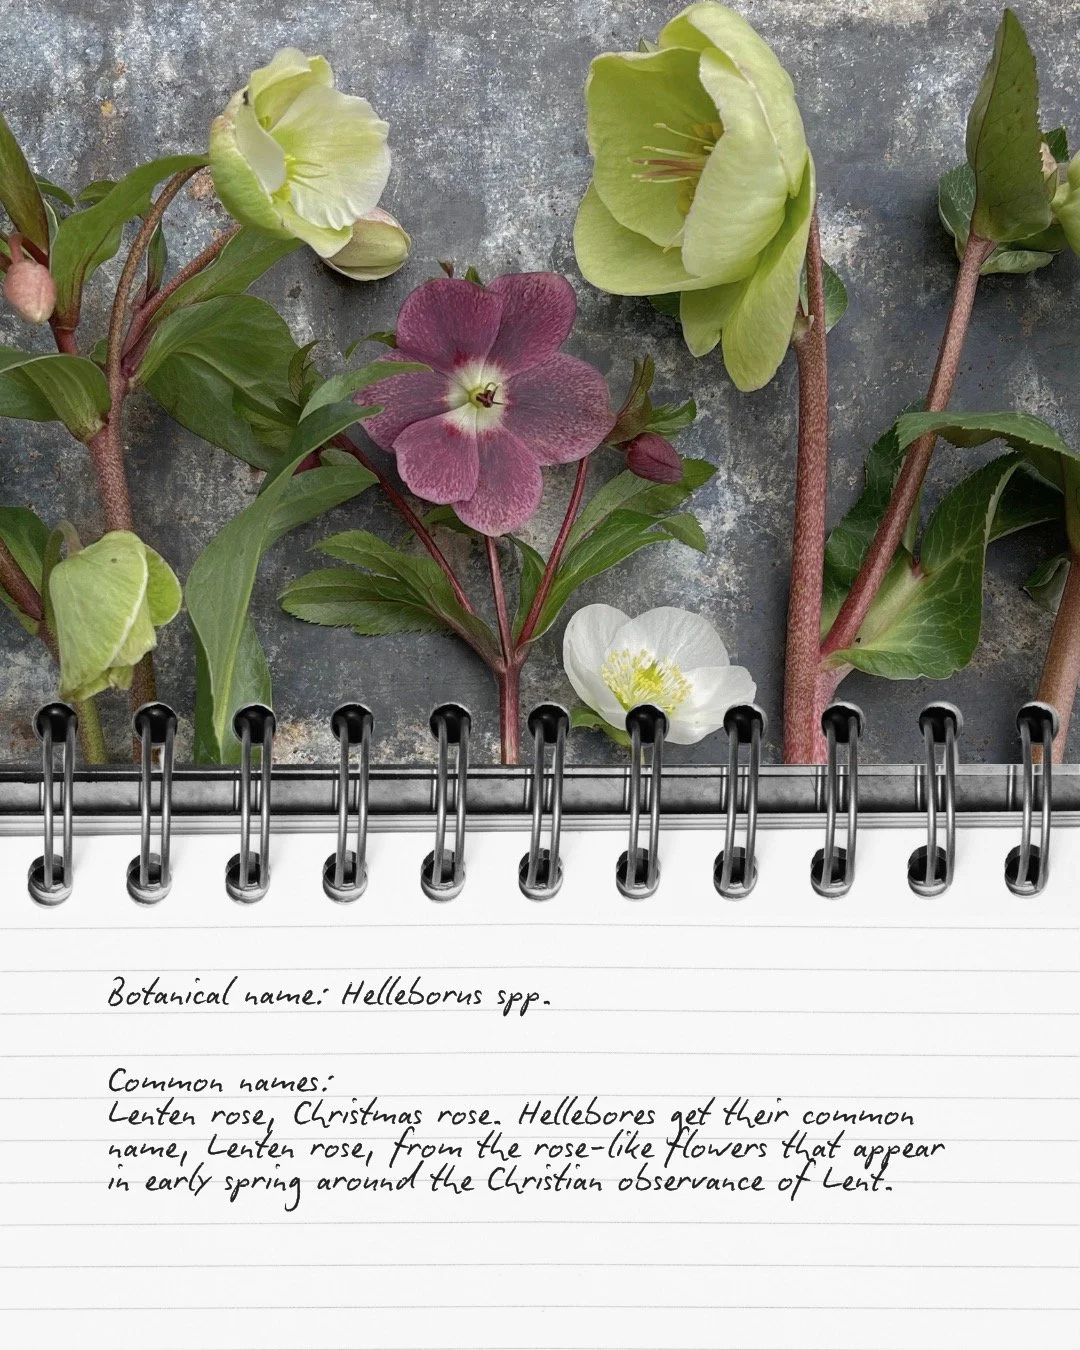 Botanical name: Helleborus spp.
Common names:
Lenten rose, Christmas rose. Hellebores get their common
name, Lenten rose, from the rose-like flowers that appear
in early spring around the Christian observance of Lent.